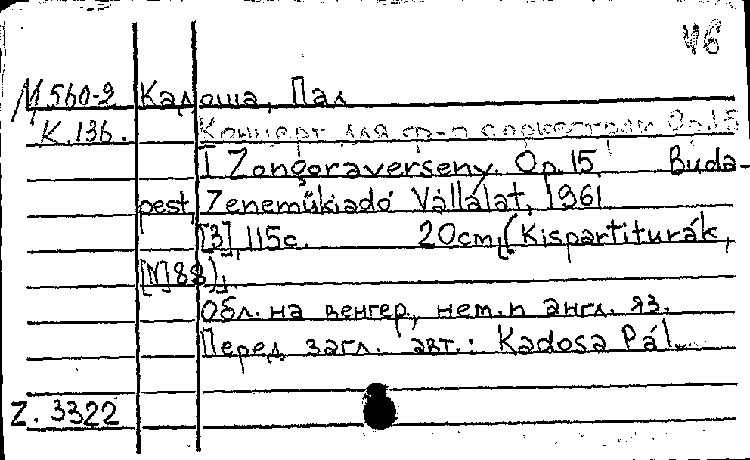 46
М 560-2 Кадоша, Пал
К.136. Концерт для ф-п с оркестром Op.15
I Zongoraverseny. Op. 15. Buda-
pest, Zeneműkiadó Vállalat, 1961
[3], 115c. 20cm. (Kispartiturák,
[N] 88).
Обл. на венгер, нем. и англ. яз.
Перед загл. авт.: Kadosa Pál.
Z. 3322